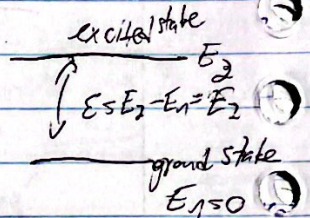 excited state
E₂
ε = E₂ - E₁ = E₂
ground state
E₁ = 0